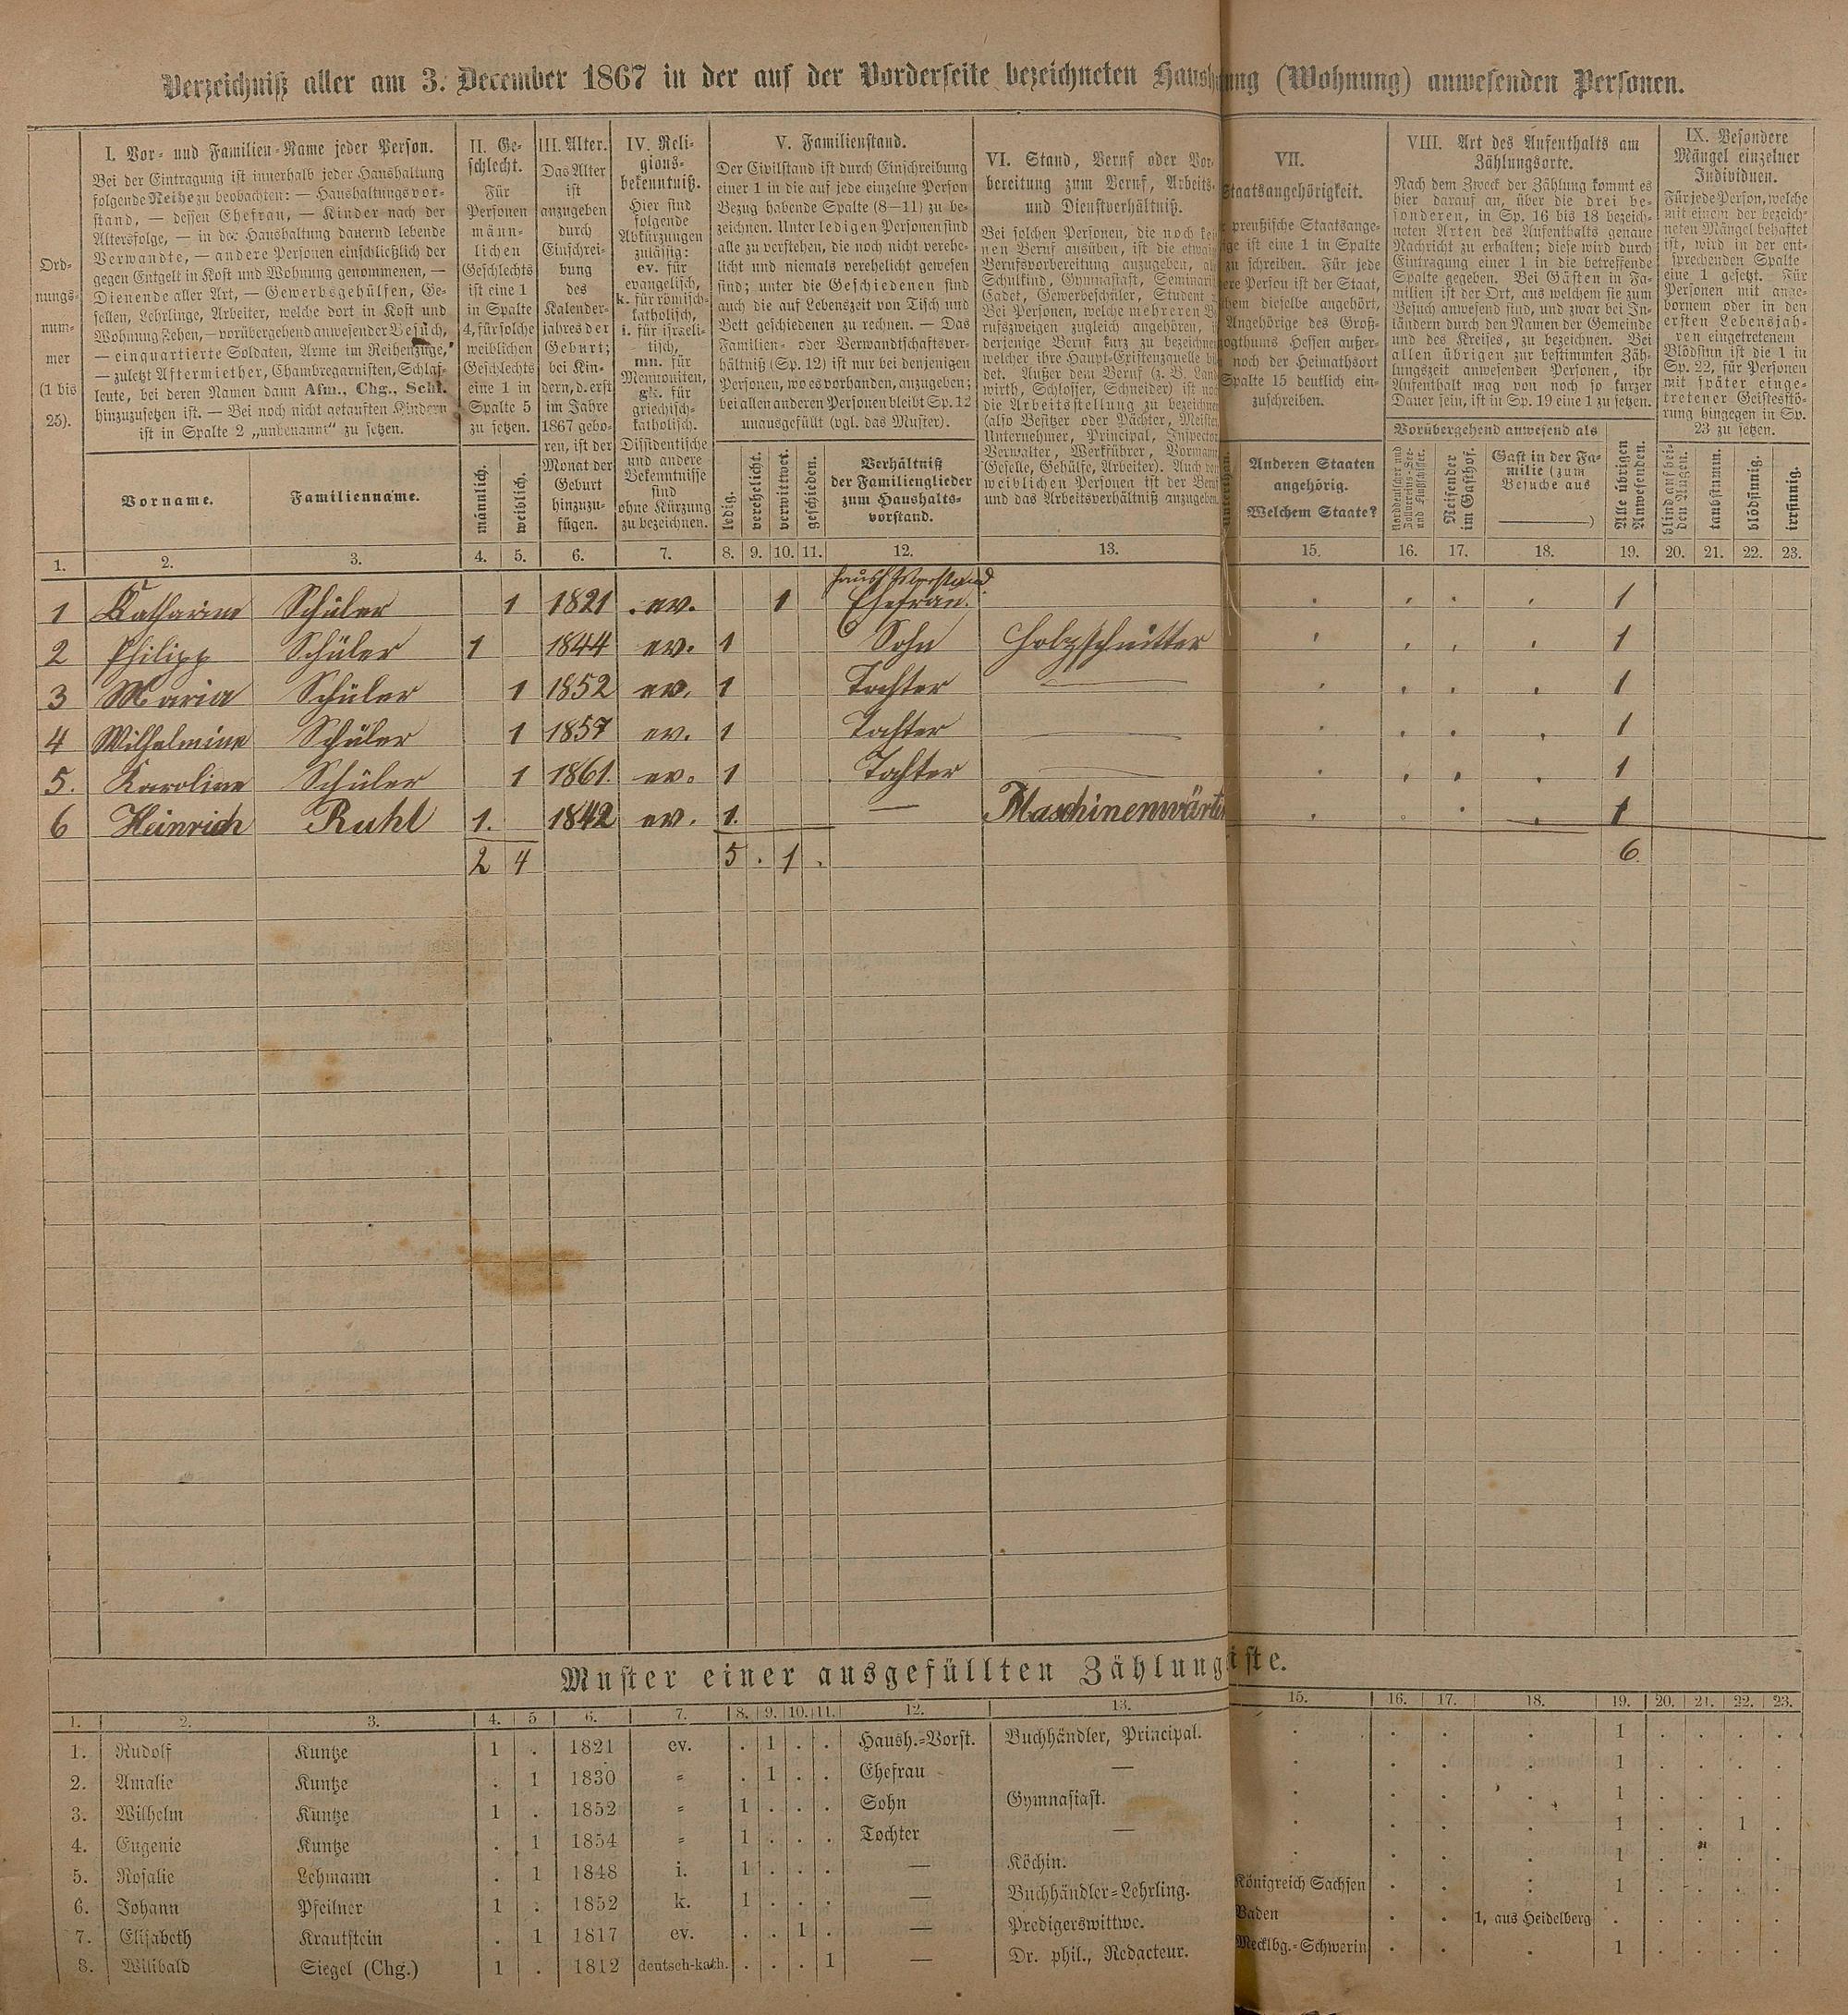 Verzeichniß aller am 3. December 1867 in der auf der Vorderseite bezeichneten Haush ung (Wohnung) anwesenden Personen.
Ord-
nungs-
num-
mer
(1 bis
25).
I. Vor- und Familien-Name jeder Person.
Bei der Eintragung ist innerhalb jeder Haushaltung
folgende Reihe zu beobachten: — Haushaltungsvor-
stand, — dessen Ehefrau, — Kinder nach der
Altersfolge, — in der Haushaltung dauernd lebende
Verwandte, — andere Personen einschließlich der
gegen Entgelt in Kost und Wohnung genommenen, —
Dienende aller Art, — Gewerbsgehülfen, Ge-
sellen, Lehrlinge, Arbeiter, welche dort in Kost und
Wohnung stehen, — vorübergehend anwesender Besuch,
— einquartierte Soldaten, Arme im Reihenzuge,
— zuletzt Aftermiether, Chambregarnisten, Schlaf-
leute, bei deren Namen dann Afm., Chg., Schl.
hinzuzusetzen ist. — Bei noch nicht getauften Kindern
ist in Spalte 2 „unbenannt“ zu setzen.
Vorname.
Familienname.
II. Ge-
schlecht.
Für
Personen
männ-
lichen
Geschlechts
ist eine 1
in Spalte
4, für solche
weiblichen
Geschlechts
eine 1 in
Spalte 5
zu setzen.
männlich.
weiblich.
III. Alter.
Das Alter
ist
anzugeben
durch
Einschrei-
bung
des
Kalender-
jahres der
Geburt;
bei Kin-
dern, d. erst
im Jahre
1867 gebo-
ren, ist der
Monat der
Geburt
hinzuzu-
fügen.
IV. Reli-
gions-
bekenntniß.
Hier sind
folgende
Abkürzungen
zulässig:
ev. für
evangelisch,
k. für römisch-
katholisch,
i. für israeli-
tisch,
mn. für
Mennoniten,
gk. für
griechisch-
katholisch.
Dissidentische
und andere
Bekenntnisse
sind
ohne Kürzung
zu bezeichnen.
V. Familienstand.
Der Civilstand ist durch Einschreibung
einer 1 in die auf jede einzelne Person
Bezug habende Spalte (8—11) zu be-
zeichnen. Unter ledigen Personen sind
alle zu verstehen, die noch nicht verehe-
licht und niemals verehelicht gewesen
sind; unter die Geschiedenen sind
auch die auf Lebenszeit von Tisch und
Bett geschiedenen zu rechnen. — Das
Familien- oder Verwandtschaftsver-
hältniß (Sp. 12) ist nur bei denjenigen
Personen, wo es vorhanden, anzugeben;
bei allen anderen Personen bleibt Sp. 12
unausgefüllt (vgl. das Muster).
ledig.
verehelicht.
verwittwet.
geschieden.
Verhältniß
der Familienglieder
zum Haushalts-
vorstand.
VI. Stand, Beruf oder Vor-
bereitung zum Beruf, Arbeits-
und Dienstverhältniß.
Bei solchen Personen, die noch kei
nen Beruf ausüben, ist die etwaige
Berufsvorbereitung anzugeben, al
Schulkind, Gymnasiast, Seminari
Cadet, Gewerbeschüler, Student
Bei Personen, welche mehreren B
rufszweigen zugleich angehören, i
derjenige Beruf kurz zu bezeichnen
welcher ihre Haupt-Existenzquelle bil
det. Außer dem Beruf (z. B. Land
wirth, Schlosser, Schneider) ist noch
die Arbeitsstellung zu bezeichnen
(also Besitzer oder Pächter, Meister
Unternehmer, Principal, Inspector
Verwalter, Werkführer, Vormann
Geselle, Gehülfe, Arbeiter). Auch von
weiblichen Personen ist der Beruf
und das Arbeitsverhältniß anzugeben.
VII.
Staatsangehörigkeit.
preußische Staatsange-
ige ist eine 1 in Spalte
zu schreiben. Für jede
ere Person ist der Staat,
chem dieselbe angehört,
Angehörige des Groß-
ogthums Hessen außer-
noch der Heimathsort
Spalte 15 deutlich ein-
zuschreiben.
Anderen Staaten
angehörig.
Welchem Staate?
VIII. Art des Aufenthalts am
Zählungsorte.
Nach dem Zweck der Zählung kommt es
hier darauf an, über die drei be-
sonderen, in Sp. 16 bis 18 bezeich-
neten Arten des Aufenthalts genaue
Nachricht zu erhalten; diese wird durch
Eintragung einer 1 in die betreffende
Spalte gegeben. Bei Gästen in Fa-
milien ist der Ort, aus welchem sie zum
Besuch anwesend sind, und zwar bei In-
ländern durch den Namen der Gemeinde
und des Kreises, zu bezeichnen. Bei
allen übrigen zur bestimmten Zäh-
lungszeit anwesenden Personen, ihr
Aufenthalt mag von noch so kurzer
Dauer sein, ist in Sp. 19 eine 1 zu setzen.
Vorübergehend anwesend als
Norddeutscher und
Zollvereins-See-
und Flußschiffer.
Reisender
im Gasthof.
Gast in der Fa-
milie (zum
Besuche aus
)
Alle übrigen
Anwesenden.
IX. Besondere
Mängel einzelner
Individuen.
Für jede Person, welche
mit einem der bezeich-
neten Mängel behaftet
ist, wird in der ent-
sprechenden Spalte
eine 1 gesetzt. Für
Personen mit ange-
bornem oder in den
ersten Lebensjah-
ren eingetretenem
Blödsinn ist die 1 in
Sp. 22, für Personen
mit später einge-
tretener Geistesstö-
rung hingegen in Sp.
23 zu setzen.
blind auf bei-
den Augen.
taubstumm.
blödsinnig.
irrsinnig.
1. 2. 3. 4. 5. 6. 7. 8. 9. 10. 11. 12. 13. 15. 16. 17. 18. 19. 20. 21. 22. 23.
Haush Vorstand
1 Katharine Schüler 1 1821 ev. 1 Ehefrau. 1
2 Philipp Schüler 1 1844 ev. 1 Sohn Holzschnitter 1
3 Maria Schüler 1 1852 ev. 1 Tochter — 1
4 Wilhelmine Schüler 1 1857 ev. 1 Tochter — 1
5. Karoline Schüler 1 1861. ev. 1 Tochter — 1
6 Heinrich Ruhl 1. 1842 ev. 1. — Maschinenwärter 1
2 4 5 . 1 . 6
Muster einer ausgefüllten Zählung iste.
1. 2. 3. 4. 5 6. 7. 8. 9. 10. 11. 12. 13. 15. 16. 17. 18. 19. 20. 21. 22. 23.
1. Rudolf Kuntze 1 . 1821 ev. . 1 . . Haush.-Vorst. Buchhändler, Principal. . . . . 1 . . . .
2. Amalie Kuntze . 1 1830 " . 1 . . Ehefrau — . . . . 1 . . . .
3. Wilhelm Kuntze 1 . 1852 " 1 . . . Sohn Gymnasiast. . . . . 1 . . . .
4. Eugenie Kuntze . 1 1854 " 1 . . . Tochter — . . . . 1 . . 1 .
5. Rosalie Lehmann . 1 1848 i. 1 . . . — Köchin. . . . . 1 . . . .
6. Johann Pfeilner 1 . 1852 k. 1 . . . — Buchhändler-Lehrling. Königreich Sachsen . . . 1 . . . .
7. Elisabeth Krautstein . 1 1817 ev. . . 1 . — Predigerswittwe. Baden . . 1, aus Heidelberg . . . . .
8. Wilibald Siegel (Chg.) 1 . 1812 deutsch-kath. . . . 1 — Dr. phil., Redacteur. Mecklbg.-Schwerin . . . 1 . . . .